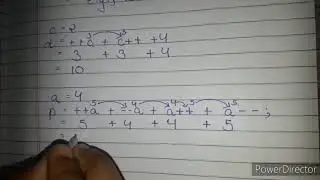 c = 2
= 3 + 3 + 4
= 10
a = 4
p = ++a + --a + a++ + a-- ;
= 5 + 4 + 4 + 5
=
PowerDirector